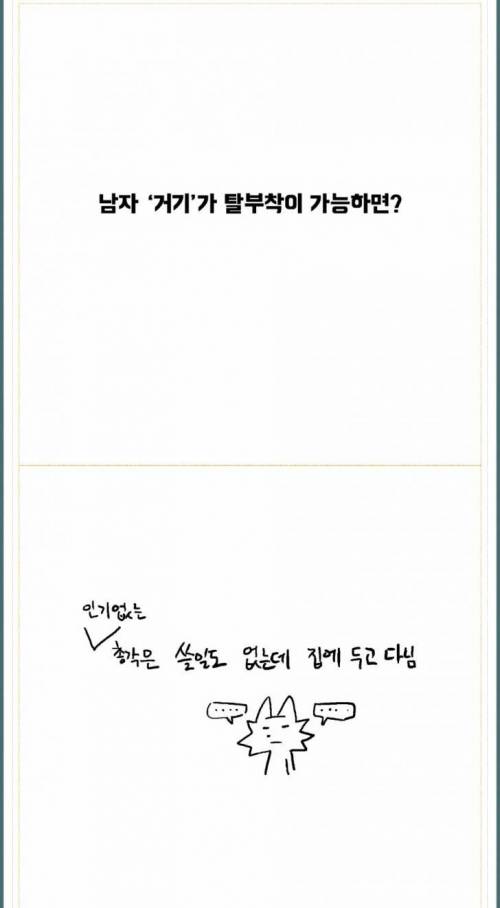 남자 ‘거기’가 탈부착이 가능하면?
인기없는
총각은 쓸일도 없는데 집에 두고 다님
....
....